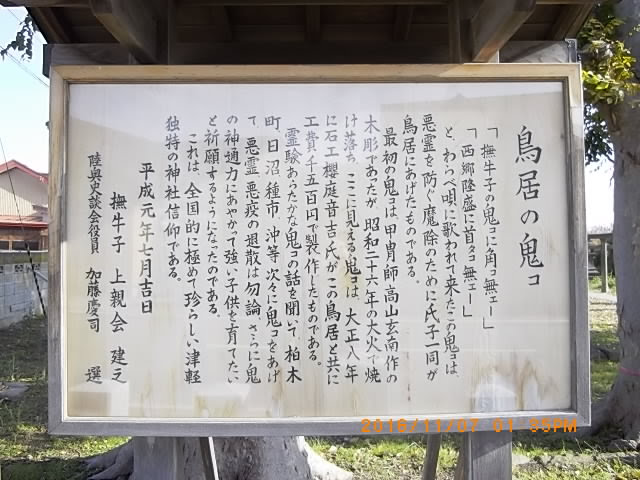 鳥居の鬼コ
「撫牛子の鬼コに角コ無エー」
「西郷隆盛に首コ無エー」
と、わらべ唄に歌われて来たこの鬼コは、
悪霊を防ぐ魔除のために氏子一同が
鳥居にあげたものである。
最初の鬼コは、甲冑師高山玄南作の
木彫であったが、昭和二十六年の大火で焼
け落ち、ここに見える鬼コは、大正八年
に石工櫻庭音吉氏がこの鳥居と共に
工費千五百円で製作したものである。
霊験あらたかな鬼コの話を聞いて、柏木
町、日沼、種市、沖等、次々に鬼コをあげ
て、悪霊、悪疫の退散は勿論、さらに鬼
の神通力にあやかって強い子供を育てたい
と祈願するようになったのである。
これは、全国的に極めて珍らしい津軽
独特の神社信仰である。
平成元年七月吉日
撫牛子 上親会 建之
陸奥史談会役員 加藤慶司 選
2016/11/07 01:35PM